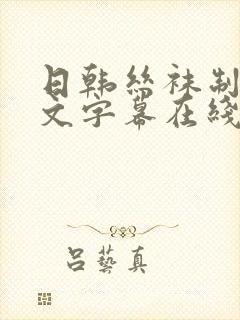 日韩丝袜制
文字幕在线
吕艺真